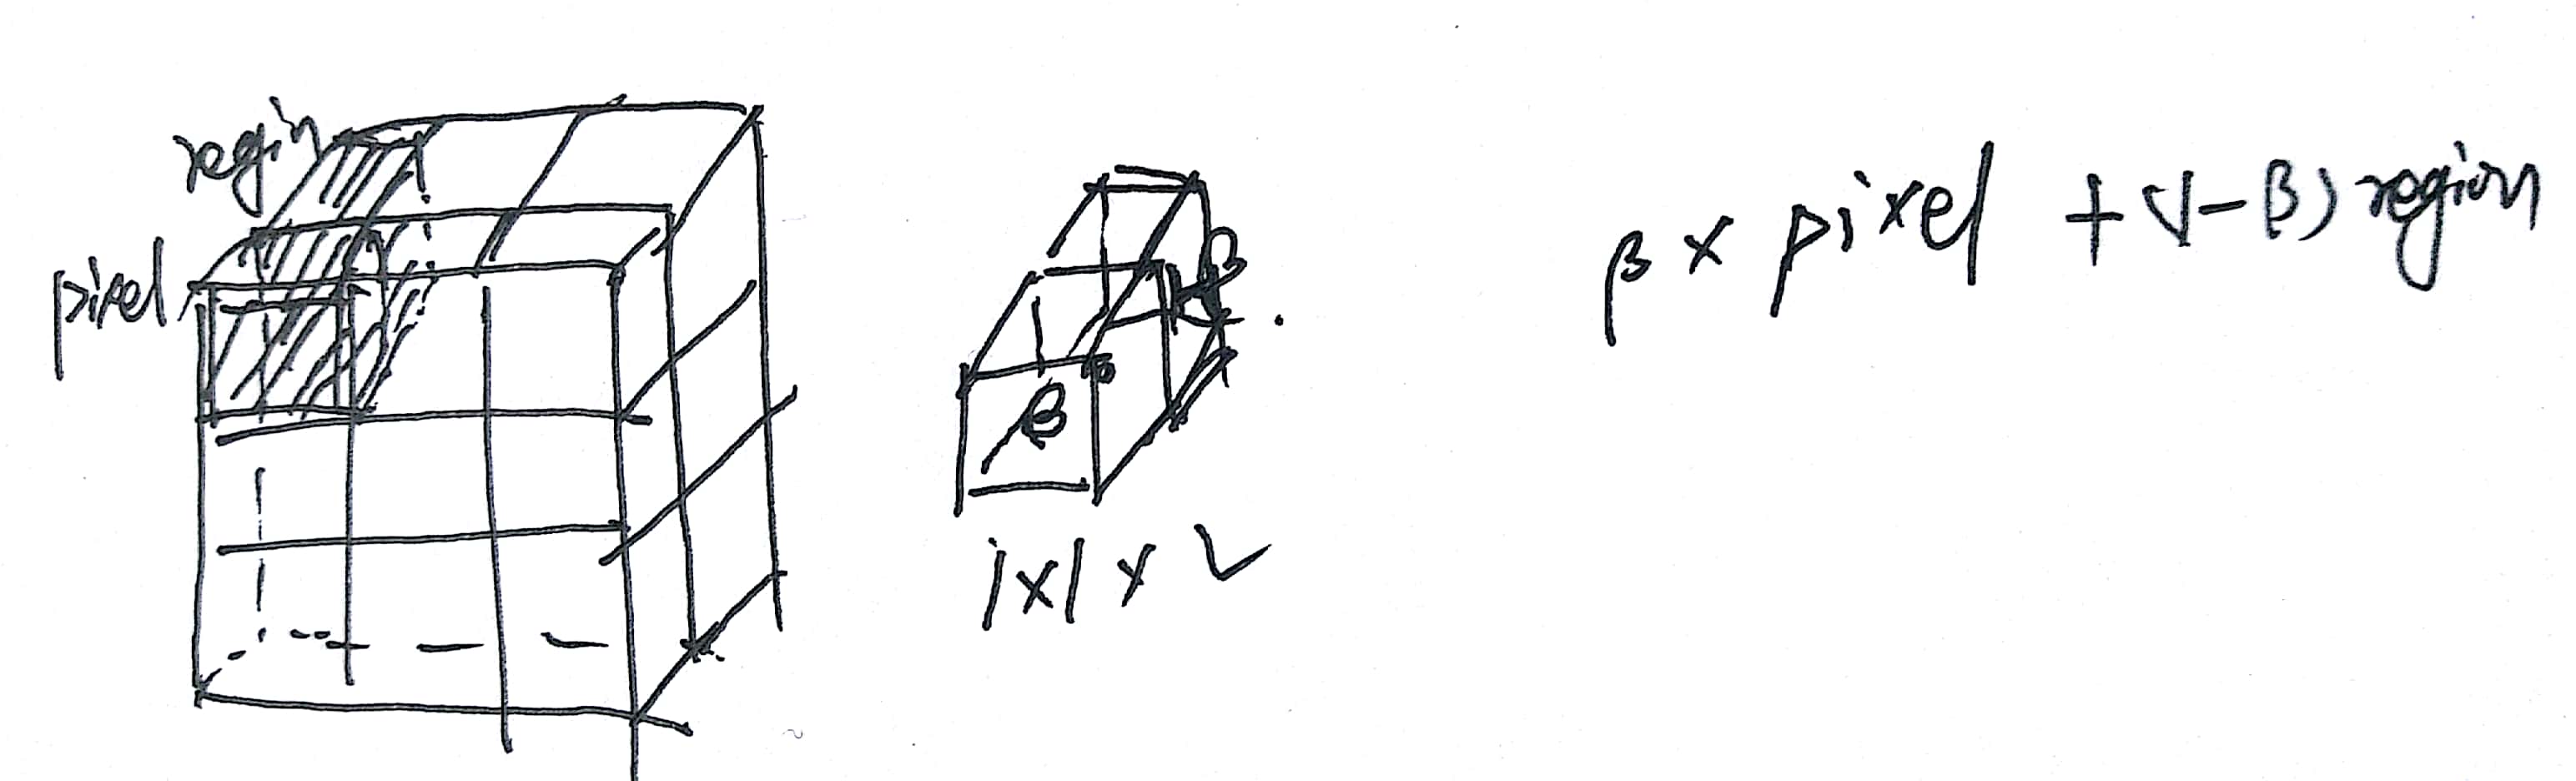 region
pixel
β
1-β
1×1×2
β × pixel + (1-β) region